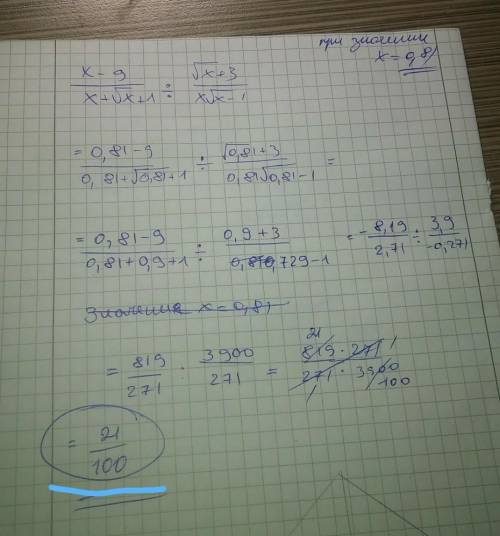 при значении
x = 0,81
x - 9 / x + √x + 1 ÷ √x + 3 / x√x - 1
= 0,81 - 9 / 0,81 + √0,81 + 1 ÷ √0,81 + 3 / 0,81√0,81 - 1 =
= 0,81 - 9 / 0,81 + 0,9 + 1 ÷ 0,9 + 3 / 0,729 - 1 = - 8,19 / 2,71 ÷ 3,9 / -0,271
Значение x = 0,81
= 819 / 271 · 3900 / 271 = 819 · 271 / 271 · 3900
21 1
1 100
= 21 / 100